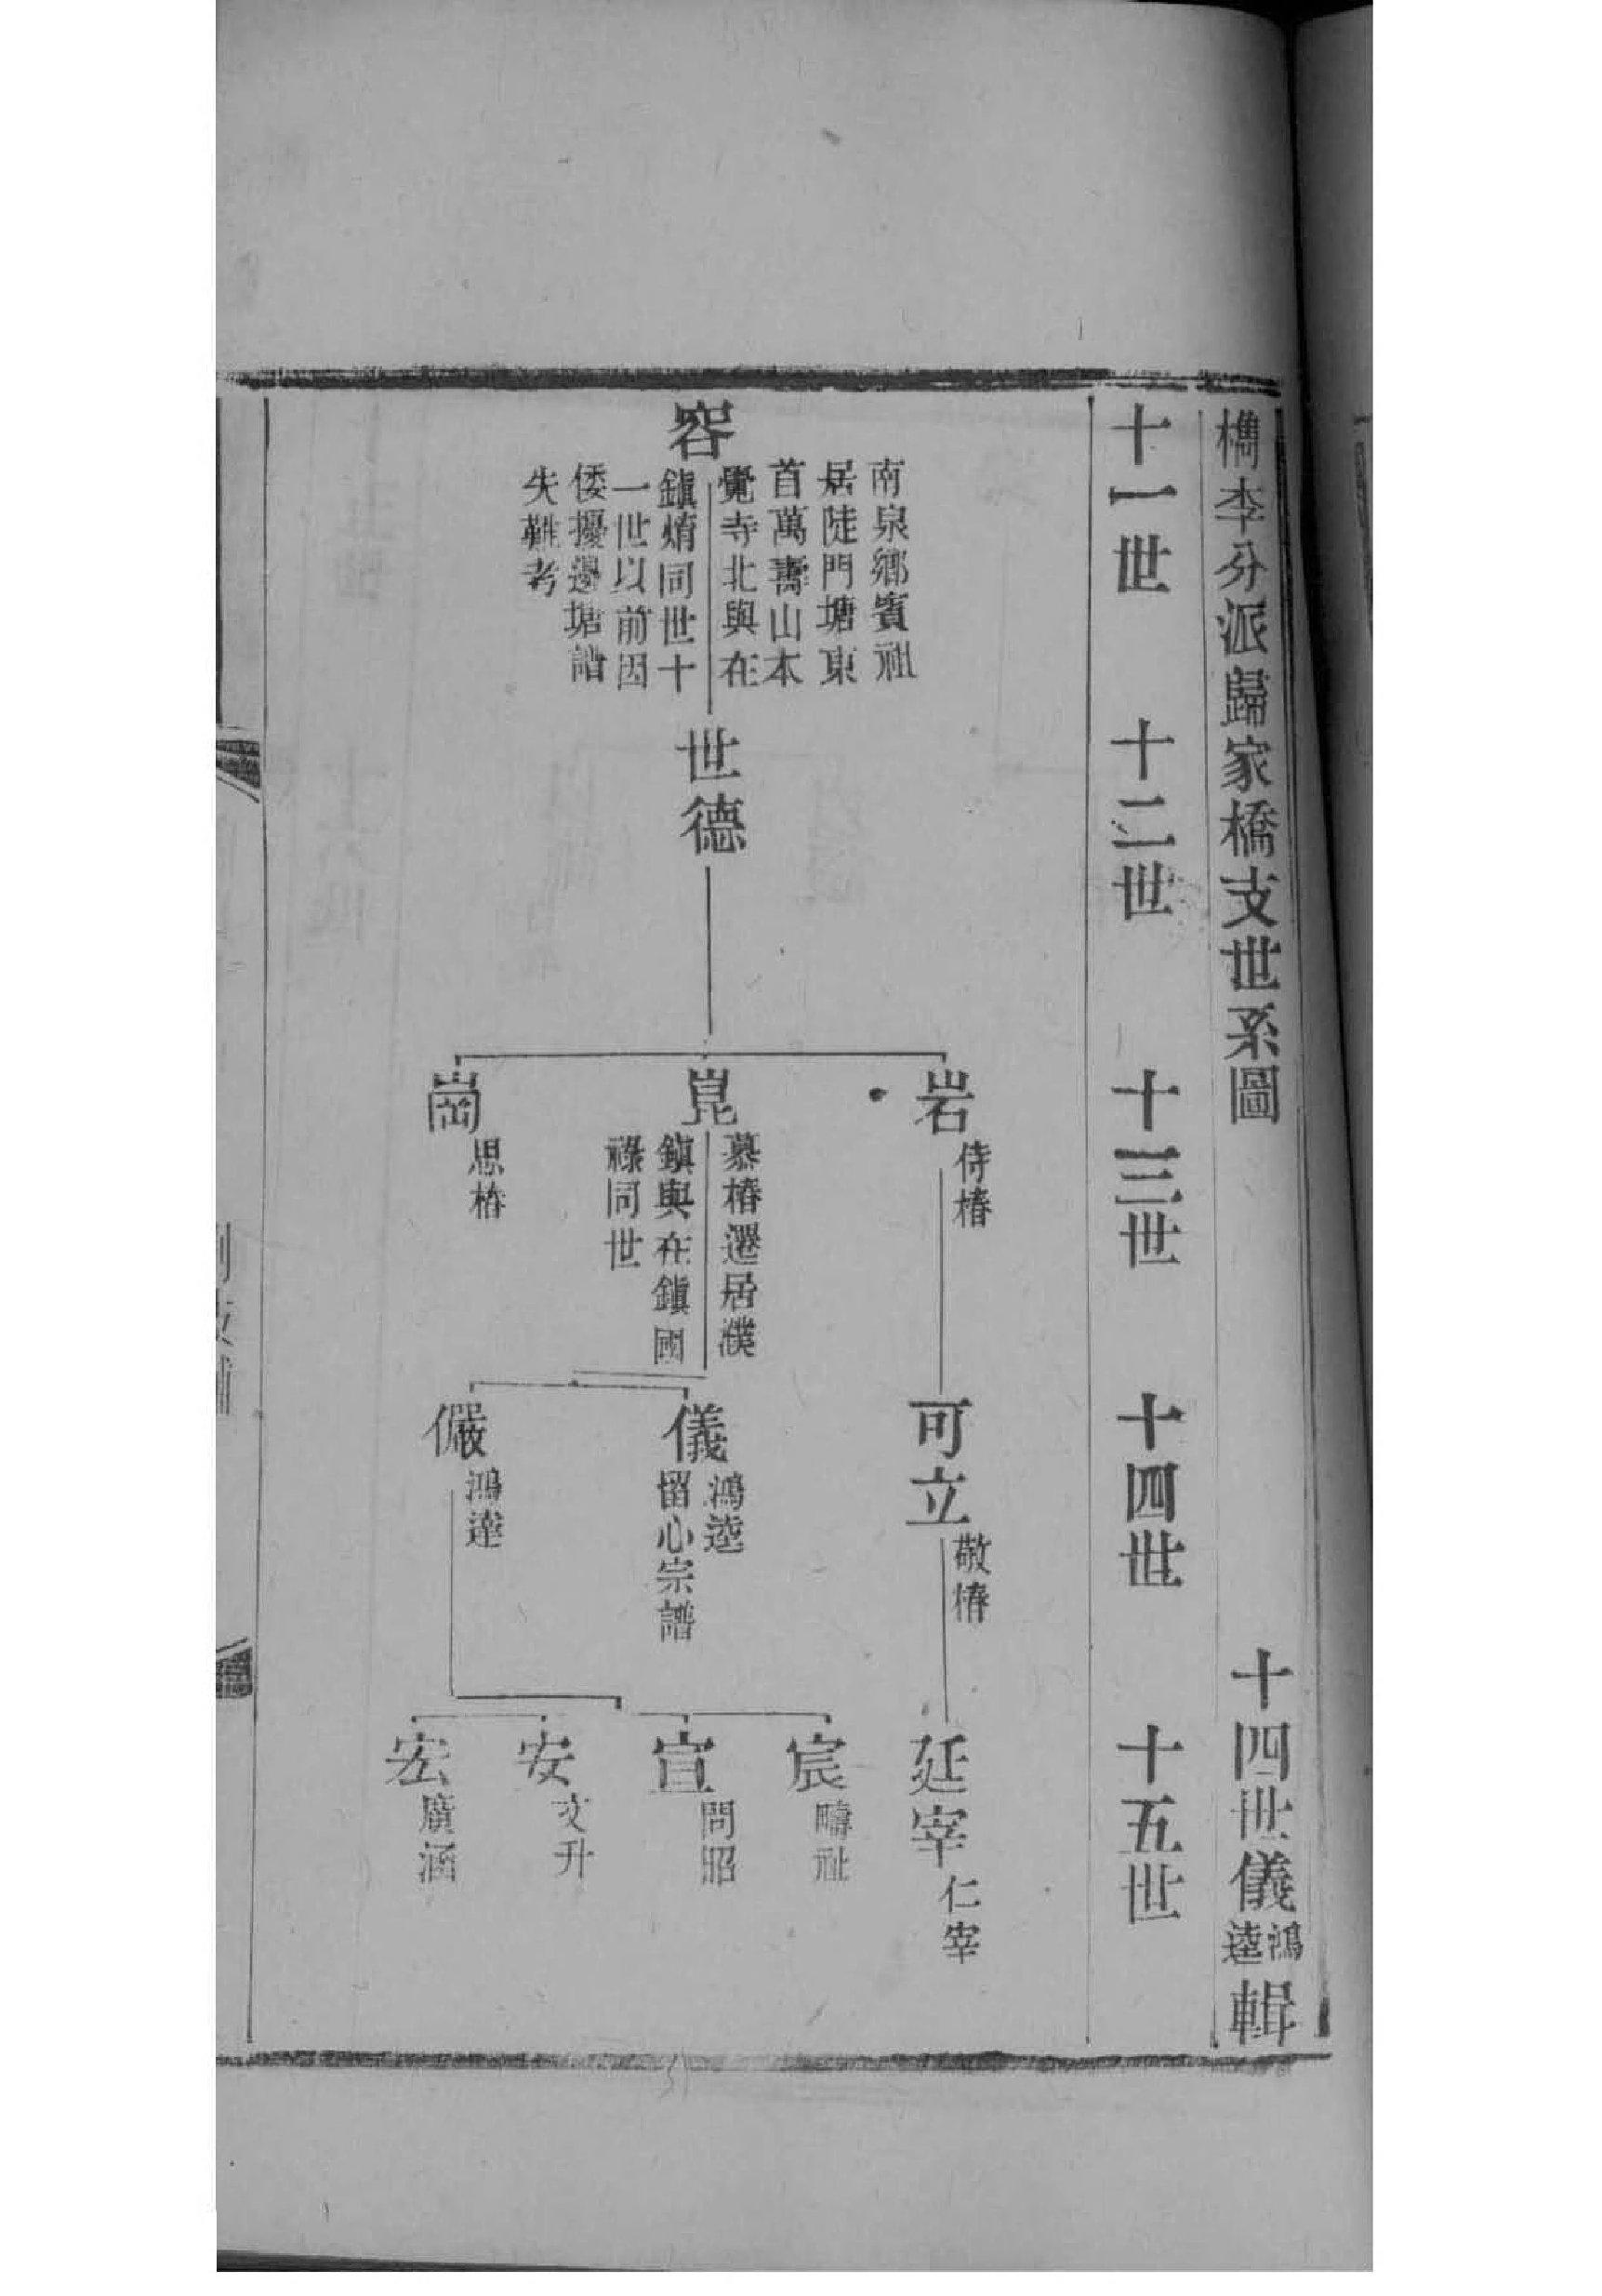 檇李分派歸家橋支世系圖
十四世儀鴻逵輯
十一世
十二世
十三世
十四世
十五世
容
南泉鄉賓祖
居陡門塘東
首萬壽山本
覺寺北與在
鎮焴同世十
一世以前因
倭擾邊塘譜
失難考
世德
岩
侍椿
崑
慕椿遷居濮
鎮與在鎮國
祿同世
崗
思椿
可立
敬椿
儀
鴻逵
留心宗譜
儼
鴻達
延宰
仁宰
宸
疇祉
宣
問昭
安
文升
宏
廣涵